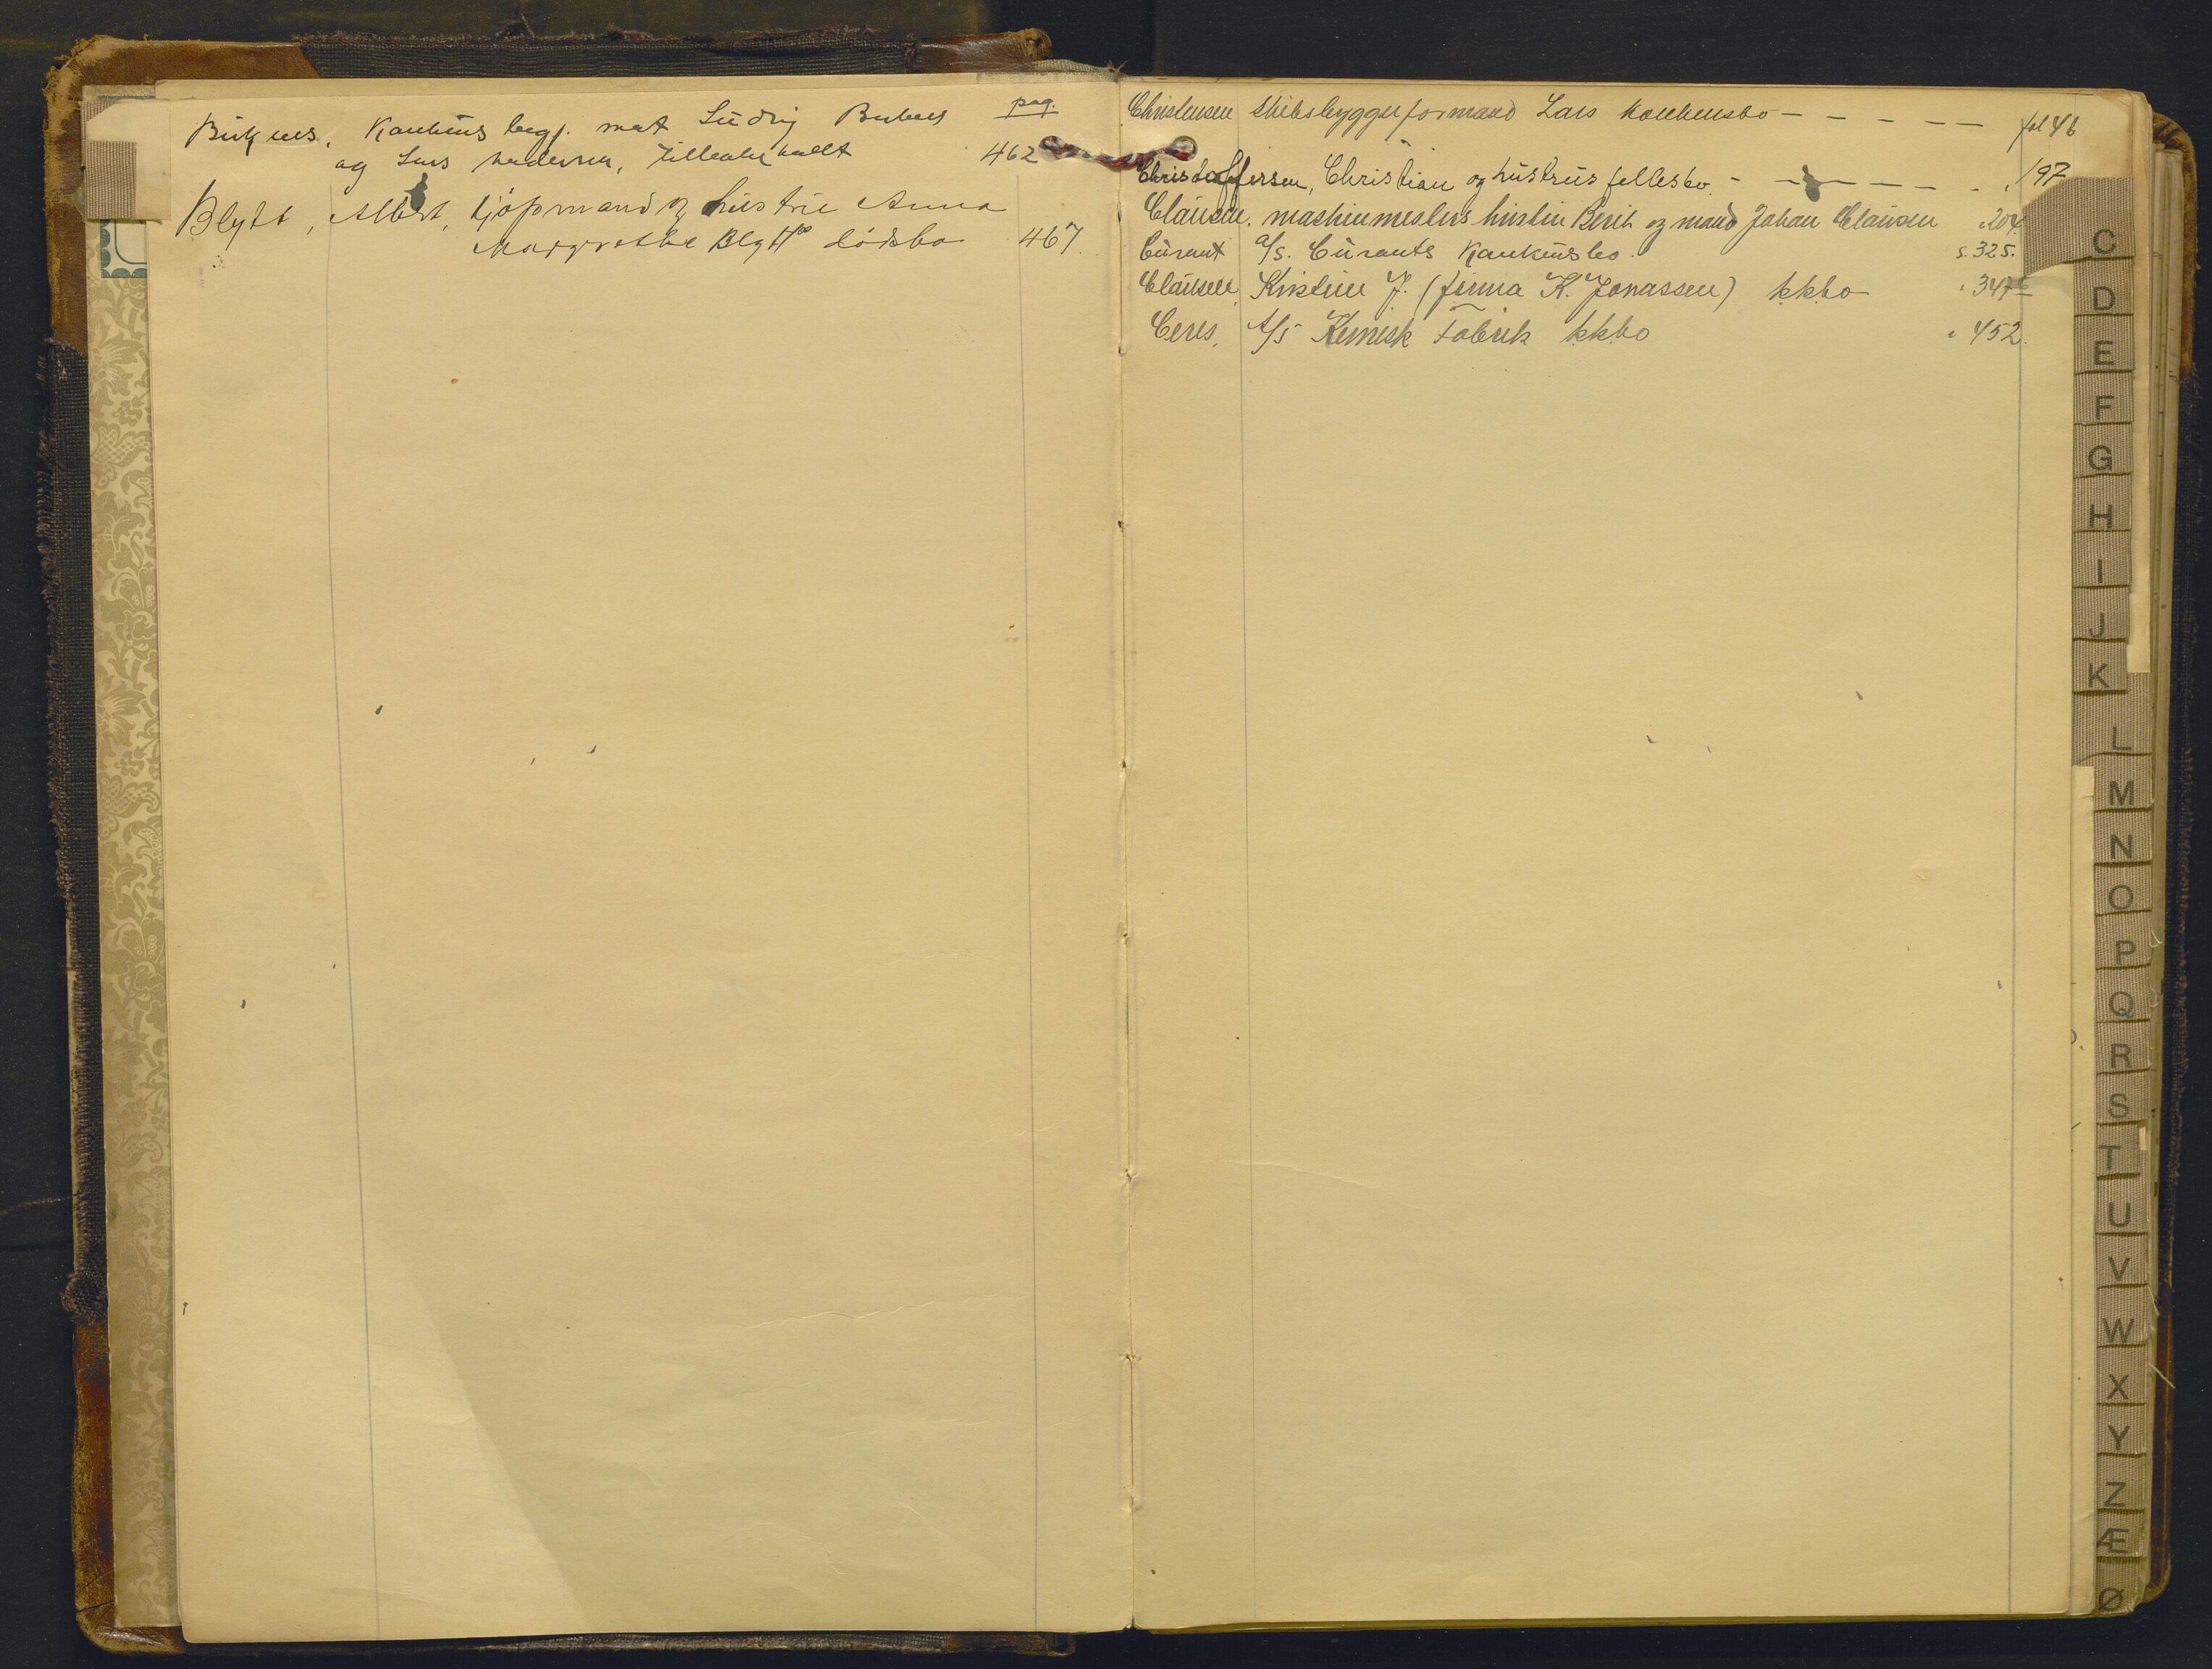 pag.
Birknes, Konkurs begj. mot Ludvig Birknes
og Lars 462
Blytt, Albert, kjøpmand og hustru Anna
Margrethe Blytts dødsbo 467.
Christensen Skibsbyggerformand Lars Konkursbo - - - - - fol 46
Christoffersen, Christian og hustrus fellesbo. - - - - - - - " 197
Clausen. maskinmesters hustru Berit og mand Johan Clausen " 204.
Curant A/S. Curants Konkursbo. s. 325.
Clausen, Kristine J. (firma K. Jonassen) kkbo " 347
Ceres, A/S Kemisk Fabrik kkbo " 452.
C
D
E
F
G
H
I
J
K
L
M
N
O
P
Q
R
S
T
U
V
W
X
Y
Z
Æ
Ø